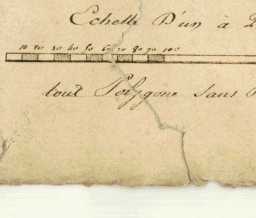 Echelle D'un à 2
10 20 30 40 50 60 70 80 90 100
tout Polygone Sans